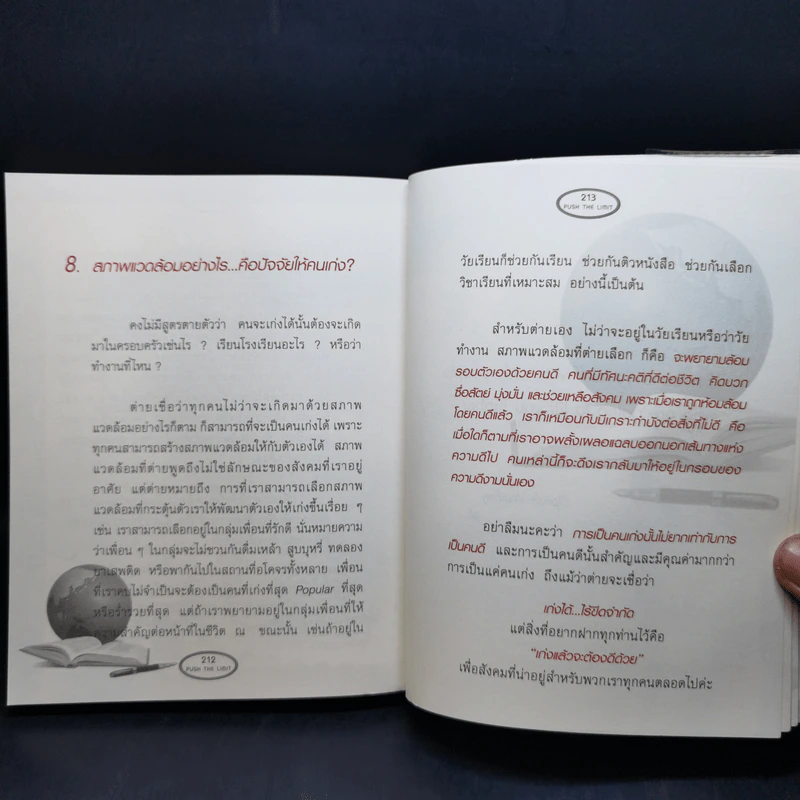 8. สภาพแวดล้อมอย่างไร...คือปัจจัยให้คนเก่ง?
คงไม่มีสูตรตายตัวว่า คนจะเก่งได้นั้นต้องจะเกิด
มาในครอบครัวเช่นไร ? เรียนโรงเรียนอะไร ? หรือว่า
ทำงานที่ไหน ?
ต่ายเชื่อว่าทุกคนไม่ว่าจะเกิดมาด้วยสภาพ
แวดล้อมอย่างไรก็ตาม ก็สามารถที่จะเป็นคนเก่งได้ เพราะ
ทุกคนสามารถสร้างสภาพแวดล้อมให้กับตัวเองได้ สภาพ
แวดล้อมที่ต่ายพูดถึงไม่ใช่ลักษณะของสังคมที่เราอยู่
อาศัย แต่ต่ายหมายถึง การที่เราสามารถเลือกสภาพ
แวดล้อมที่กระตุ้นตัวเราให้พัฒนาตัวเองให้เก่งขึ้นเรื่อย ๆ
เช่น เราสามารถเลือกอยู่ในกลุ่มเพื่อนที่รักดี นั่นหมายความ
ว่าเพื่อน ๆ ในกลุ่มจะไม่ชวนกันดื่มเหล้า สูบบุหรี่ ทดลอง
ยาเสพติด หรือพากันไปในสถานที่อโคจรทั้งหลาย เพื่อน
ที่เราคบไม่จำเป็นจะต้องเป็นคนที่เก่งที่สุด Popular ที่สุด
หรือร่ำรวยที่สุด แต่ถ้าเราพยายามอยู่ในกลุ่มเพื่อนที่ให้
ความสำคัญต่อหน้าที่ในชีวิต ณ ขณะนั้น เช่นถ้าอยู่ใน
212
PUSH THE LIMIT
213
PUSH THE LIMIT
วัยเรียนก็ช่วยกันเรียน ช่วยกันติวหนังสือ ช่วยกันเลือก
วิชาเรียนที่เหมาะสม อย่างนี้เป็นต้น
สำหรับต่ายเอง ไม่ว่าจะอยู่ในวัยเรียนหรือว่าวัย
ทำงาน สภาพแวดล้อมที่ต่ายเลือก ก็คือ จะพยายามล้อม
รอบตัวเองด้วยคนดี คนที่มีทัศนะคติที่ดีต่อชีวิต คิดบวก
ซื่อสัตย์ มุ่งมั่น และช่วยเหลือสังคม เพราะเมื่อเราถูกห้อมล้อม
โดยคนดีแล้ว เราก็เหมือนกับมีเกราะกำบังต่อสิ่งที่ไม่ดี คือ
เมื่อใดก็ตามที่เราอาจพลั้งเผลอแฉลบออกนอกเส้นทางแห่ง
ความดีไป คนเหล่านี้ก็จะดึงเรากลับมาให้อยู่ในครอบของ
ความดีงามนั่นเอง
อย่าลืมนะคะว่า การเป็นคนเก่งนั้นไม่ยากเท่ากับการ
เป็นคนดี และการเป็นคนดีนั้นสำคัญและมีคุณค่ามากกว่า
การเป็นแค่คนเก่ง ถึงแม้ว่าต่ายจะเชื่อว่า
เก่งได้...ไร้ขีดจำกัด
แต่สิ่งที่อยากฝากทุกท่านไว้คือ
"เก่งแล้วจะต้องดีด้วย"
เพื่อสังคมที่น่าอยู่สำหรับพวกเราทุกคนตลอดไปค่ะ